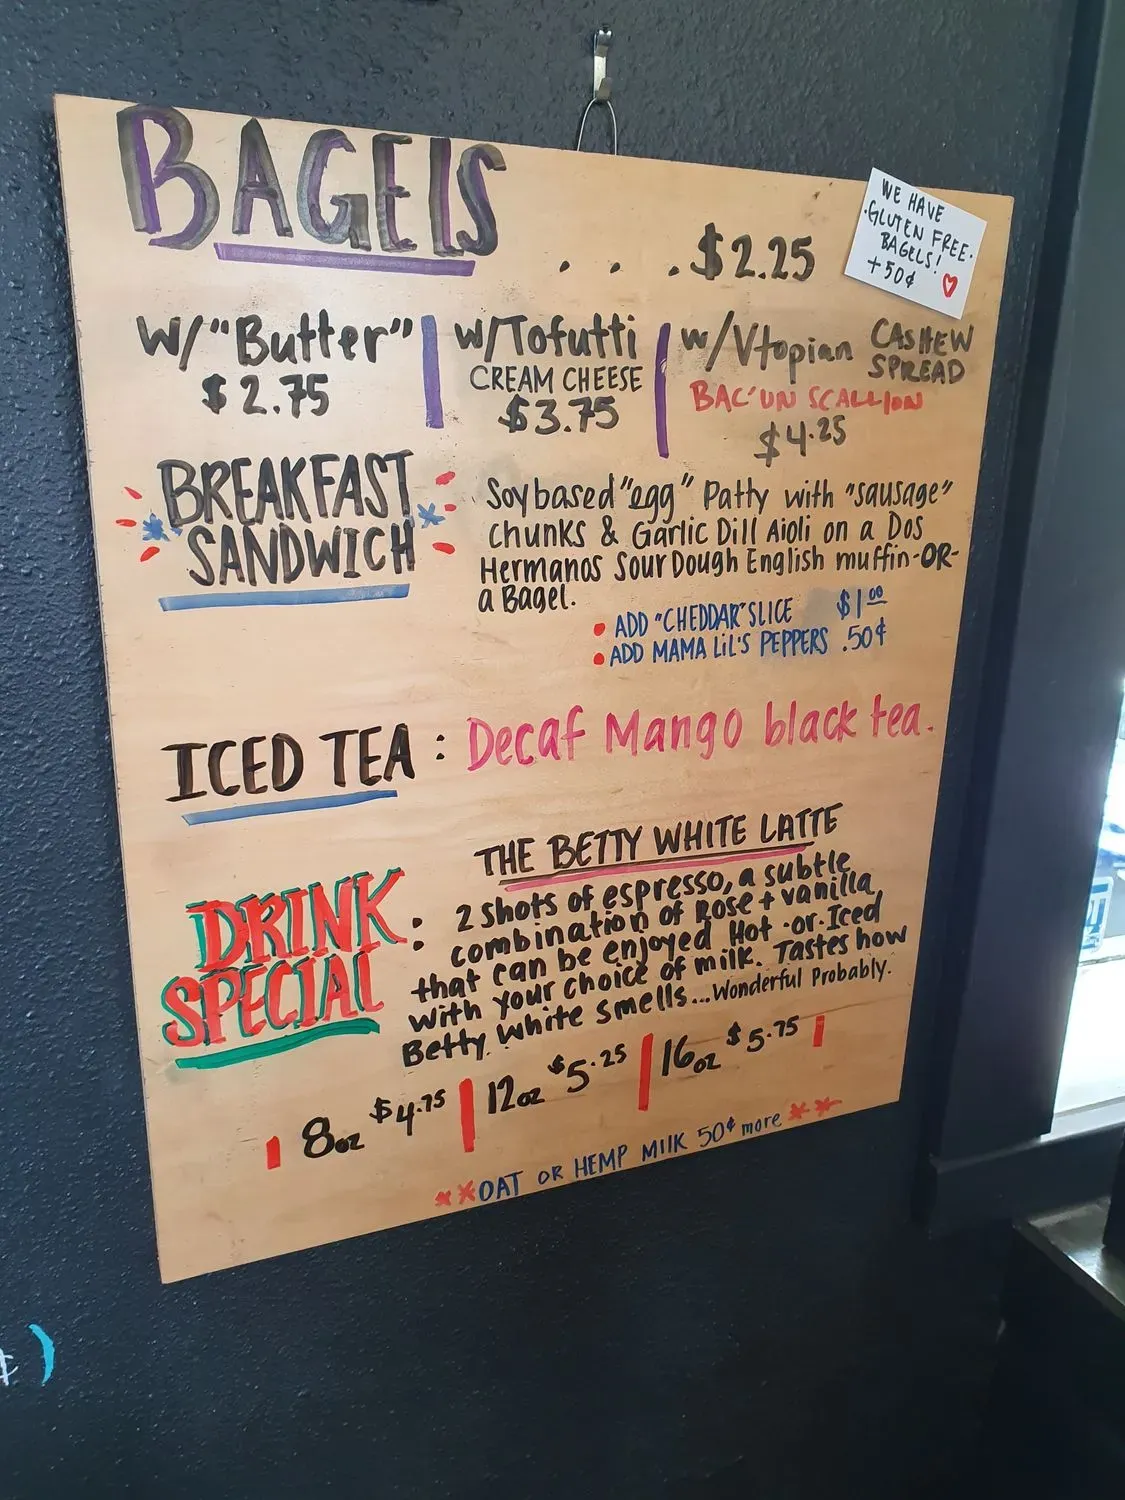 BAGELS . . . . $2.25
WE HAVE
GLUTEN FREE
BAGELS!
+50¢
w/"Butter"
$2.75
w/Tofutti
CREAM CHEESE
$3.75
w/Vtopian CASHEW SPREAD
BAC'UN SCALLION
$4.25
BREAKFAST
SANDWICH
Soybased "egg" Patty with "sausage"
chunks & Garlic Dill Aioli on a Dos
Hermanos SourDough English muffin-OR-
a Bagel.
• ADD "CHEDDAR" SLICE $1.00
• ADD MAMA LiL'S PEPPERS .50¢
ICED TEA: Decaf Mango black tea.
THE BETTY WHITE LATTE
DRINK
SPECIAL:
2 shots of espresso, a subtle
combination of Rose + vanilla,
that can be enjoyed Hot -or- Iced
with your choice of milk. Tastes how
Betty White smells...Wonderful Probably.
8oz $4.75 | 12oz $5.25 | 16oz $5.75
**OAT OR HEMP MILK 50¢ more**
¢)